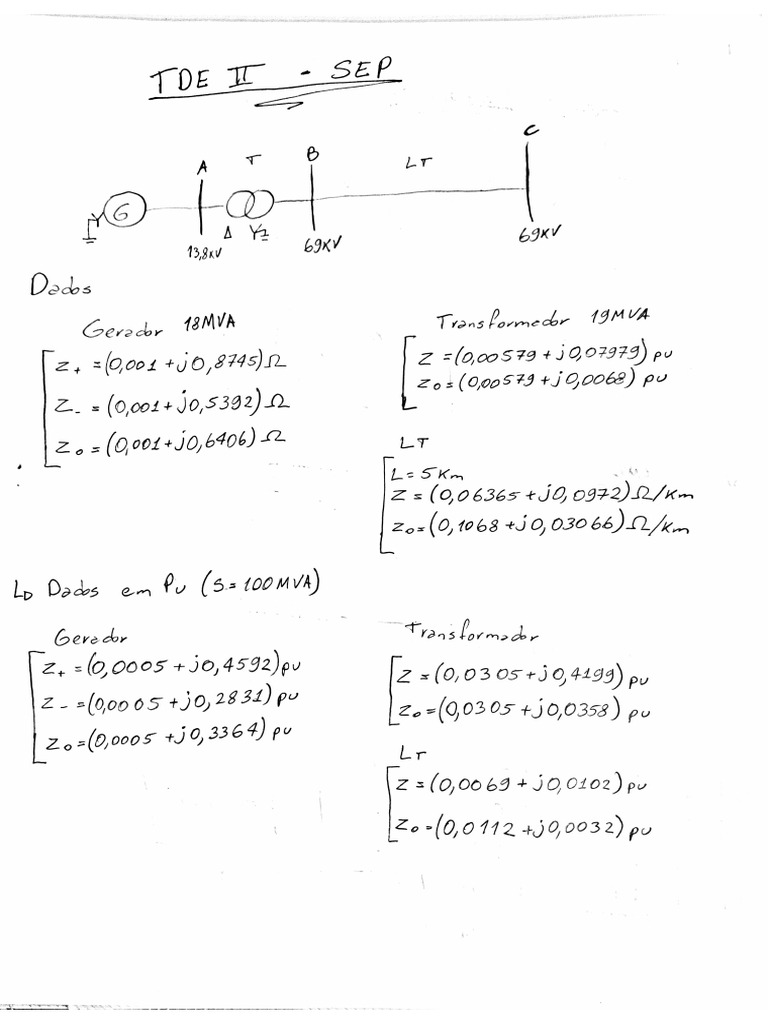 TDE II - SEP
A T B LT C
G
Δ Y
13,8KV 69KV 69KV
Dados
Gerador 18MVA
Z+ = (0,001 + j0,8745)Ω
Z- = (0,001 + j0,5392)Ω
Z0 = (0,001 + j0,6406)Ω
Transformador 19MVA
Z = (0,00579 + j0,07979) pu
Z0 = (0,00579 + j0,0068) pu
LT
L = 5 Km
Z = (0,06365 + j0,0972)Ω/Km
Z0 = (0,1068 + j0,03066)Ω/Km
↳ Dados em Pu (S = 100MVA)
Gerador
Z+ = (0,0005 + j0,4592)pu
Z- = (0,0005 + j0,2831)pu
Z0 = (0,0005 + j0,3364)pu
Transformador
Z = (0,0305 + j0,4199) pu
Z0 = (0,0305 + j0,0358) pu
LT
Z = (0,0069 + j0,0102) pu
Z0 = (0,0112 + j0,0032) pu